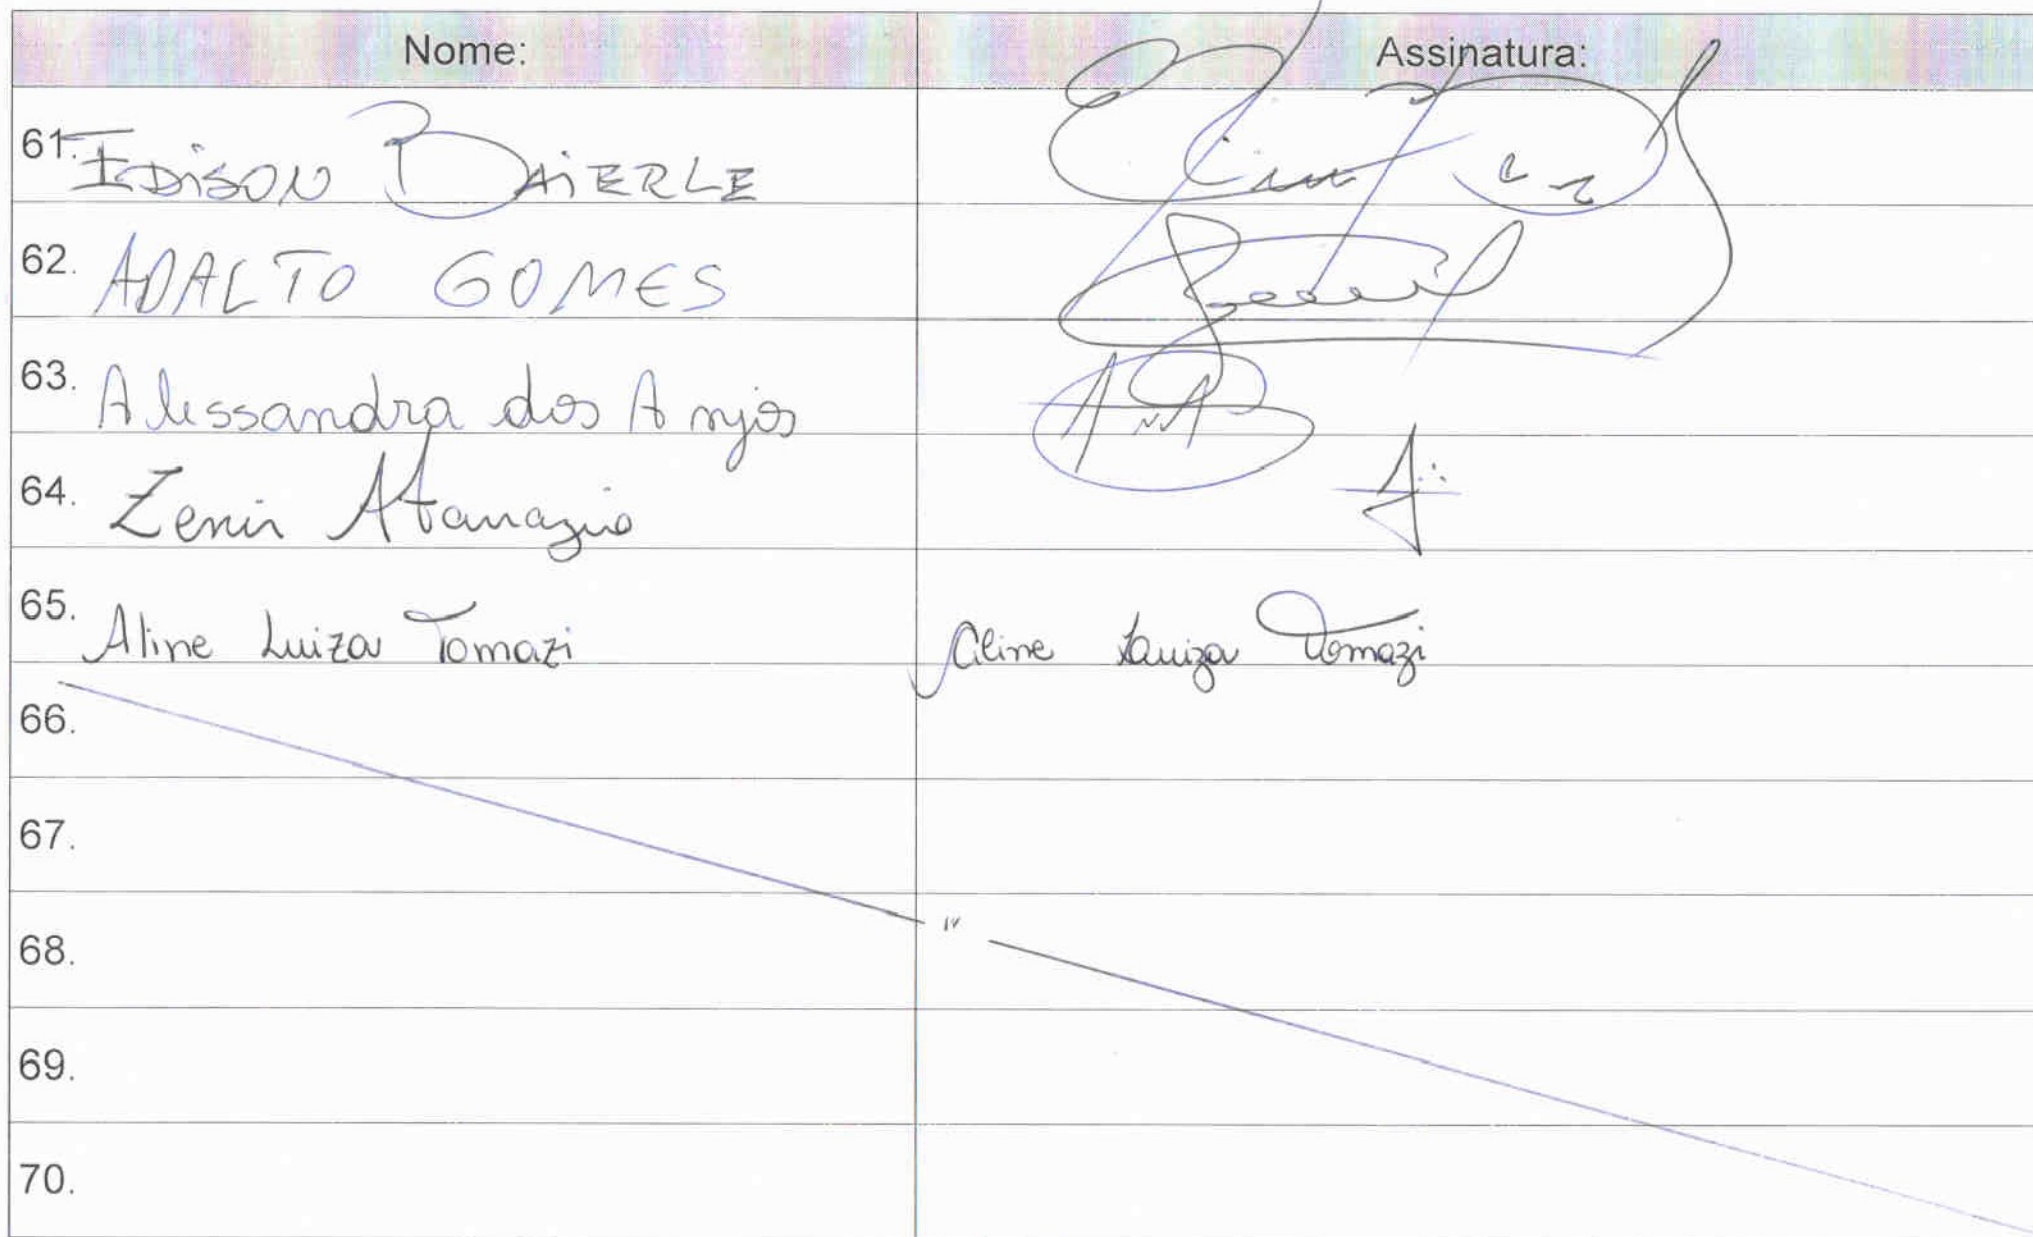 Nome: Assinatura:
61. IDISON BAIERLE
62. ADALTO GOMES
63. Alessandra dos Anjos
64. Zenir Atanazio
65. Aline Luiza Tomazi Aline Luiza Tomazi
66.
67.
68.
69.
70.